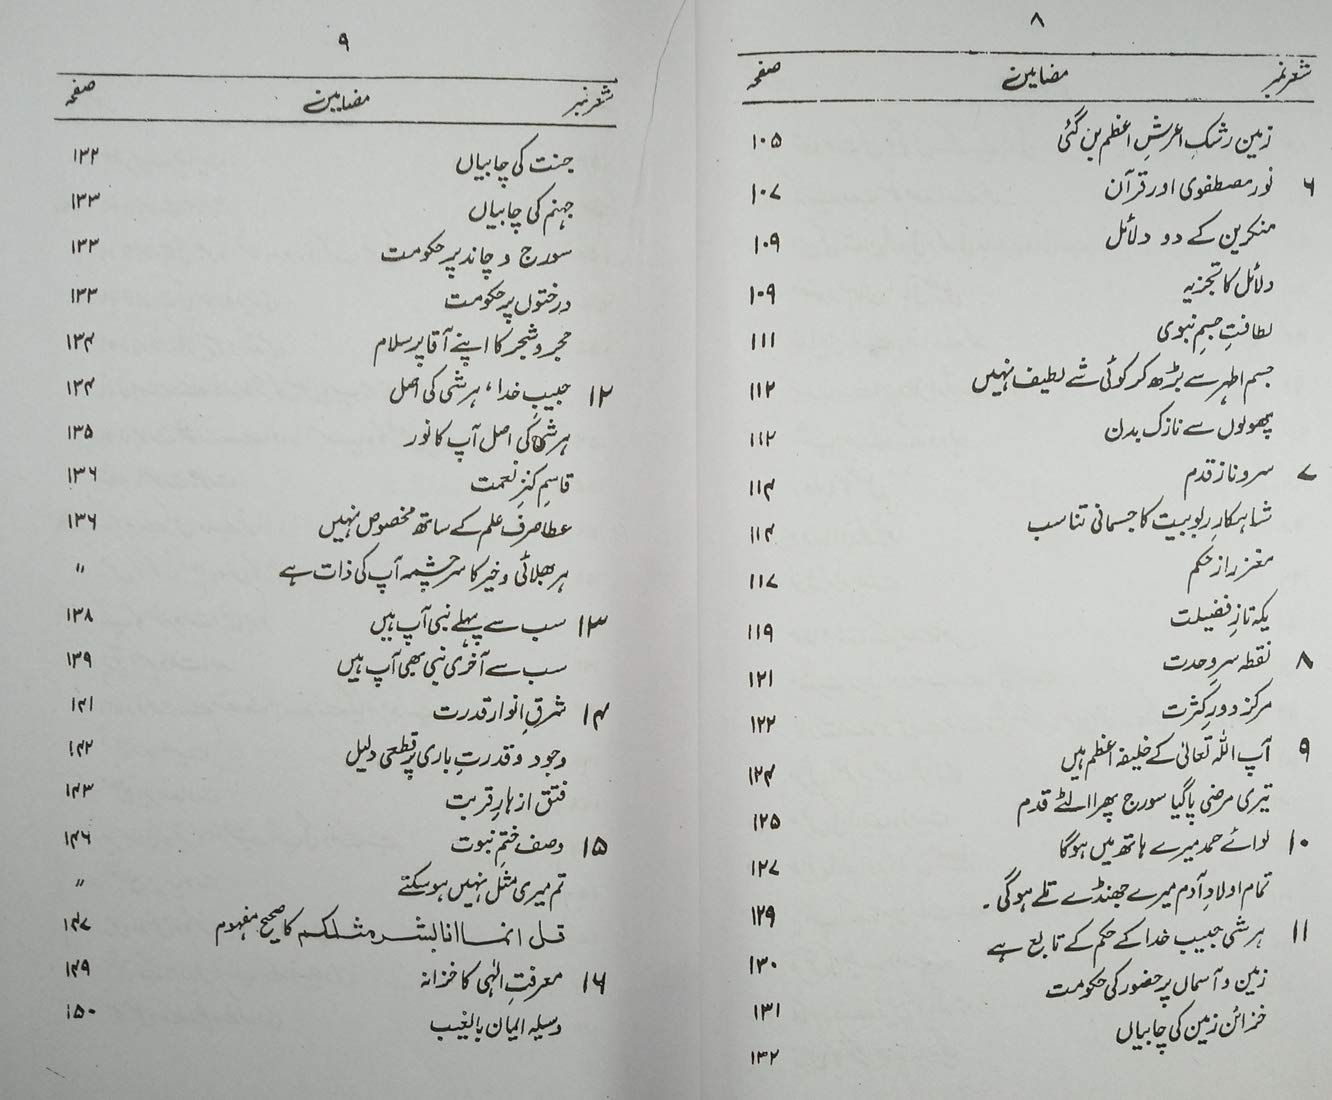 ۸
شعر نمبر مضامین صفحہ
زمین رشکِ اعرشِ اعظم بن گئی ۱۰۵
۶ نور مصطفوی اور قرآن ۱۰۷
منکرین کے دو دلائل ۱۰۹
دلائل کا تجزیہ ۱۰۹
لطافتِ جسمِ نبوی ۱۱۱
جسم اطہر سے بڑھ کر کوئی شے لطیف نہیں ۱۱۲
پھولوں سے نازک بدن ۱۱۲
۷ سرو ناز قدم ۱۱۴
شاہکارِ ربوبیت کا جسمانی تناسب ۱۱۴
مغز راز حکم ۱۱۷
یکہ تازِ فضیلت ۱۱۹
۸ نقطہ سرِ وحدت ۱۲۱
مرکز دورِ کثرت ۱۲۲
۹ آپ اللہ تعالیٰ کے خلیفہ اعظم ہیں ۱۲۴
تیری مرضی پا گیا سورج پھرا الٹے قدم ۱۲۵
۱۰ لوائے حمد میرے ہاتھ میں ہوگا ۱۲۷
تمام اولادِ آدم میرے جھنڈے تلے ہوگی۔ ۱۲۹
۱۱ ہر شی حبیب خدا کے حکم کے تابع ہے ۱۳۰
زمین و آسماں پر حضور کی حکومت ۱۳۱
خزائن زمین کی چابیاں ۱۳۲
۹
شعر نمبر مضامین صفحہ
جنت کی چابیاں ۱۳۲
جہنم کی چابیاں ۱۳۳
سورج و چاند پر حکومت ۱۳۳
درختوں پر حکومت ۱۳۳
حجر و شجر کا اپنے آقا پر سلام ۱۳۴
۱۲ حبیبِ خدا، ہر شی کی اصل ۱۳۴
ہر شی کی اصل آپ کا نور ۱۳۵
قاسمِ کنزِ نعمت ۱۳۶
عطا صرف علم کے ساتھ مخصوص نہیں ۱۳۶
ہر بھلائی و خیر کا سرچشمہ آپ کی ذات ہے "
۱۳ سب سے پہلے نبی آپ ہیں ۱۳۸
سب سے آخری نبی بھی آپ ہیں ۱۳۹
۱۴ شرقِ انوار قدرت ۱۴۱
وجود و قدرتِ باری پر قطعی دلیل ۱۴۲
فتق ازہارِ قربت ۱۴۳
۱۵ وصف ختمِ نبوت ۱۴۶
تم میری مثل نہیں ہو سکتے "
قل انما انا بشر مثلکم کا صحیح مفہوم ۱۴۷
۱۶ معرفتِ الٰہی کا خزانہ ۱۴۹
وسیلہ ایمان بالغیب ۱۵۰